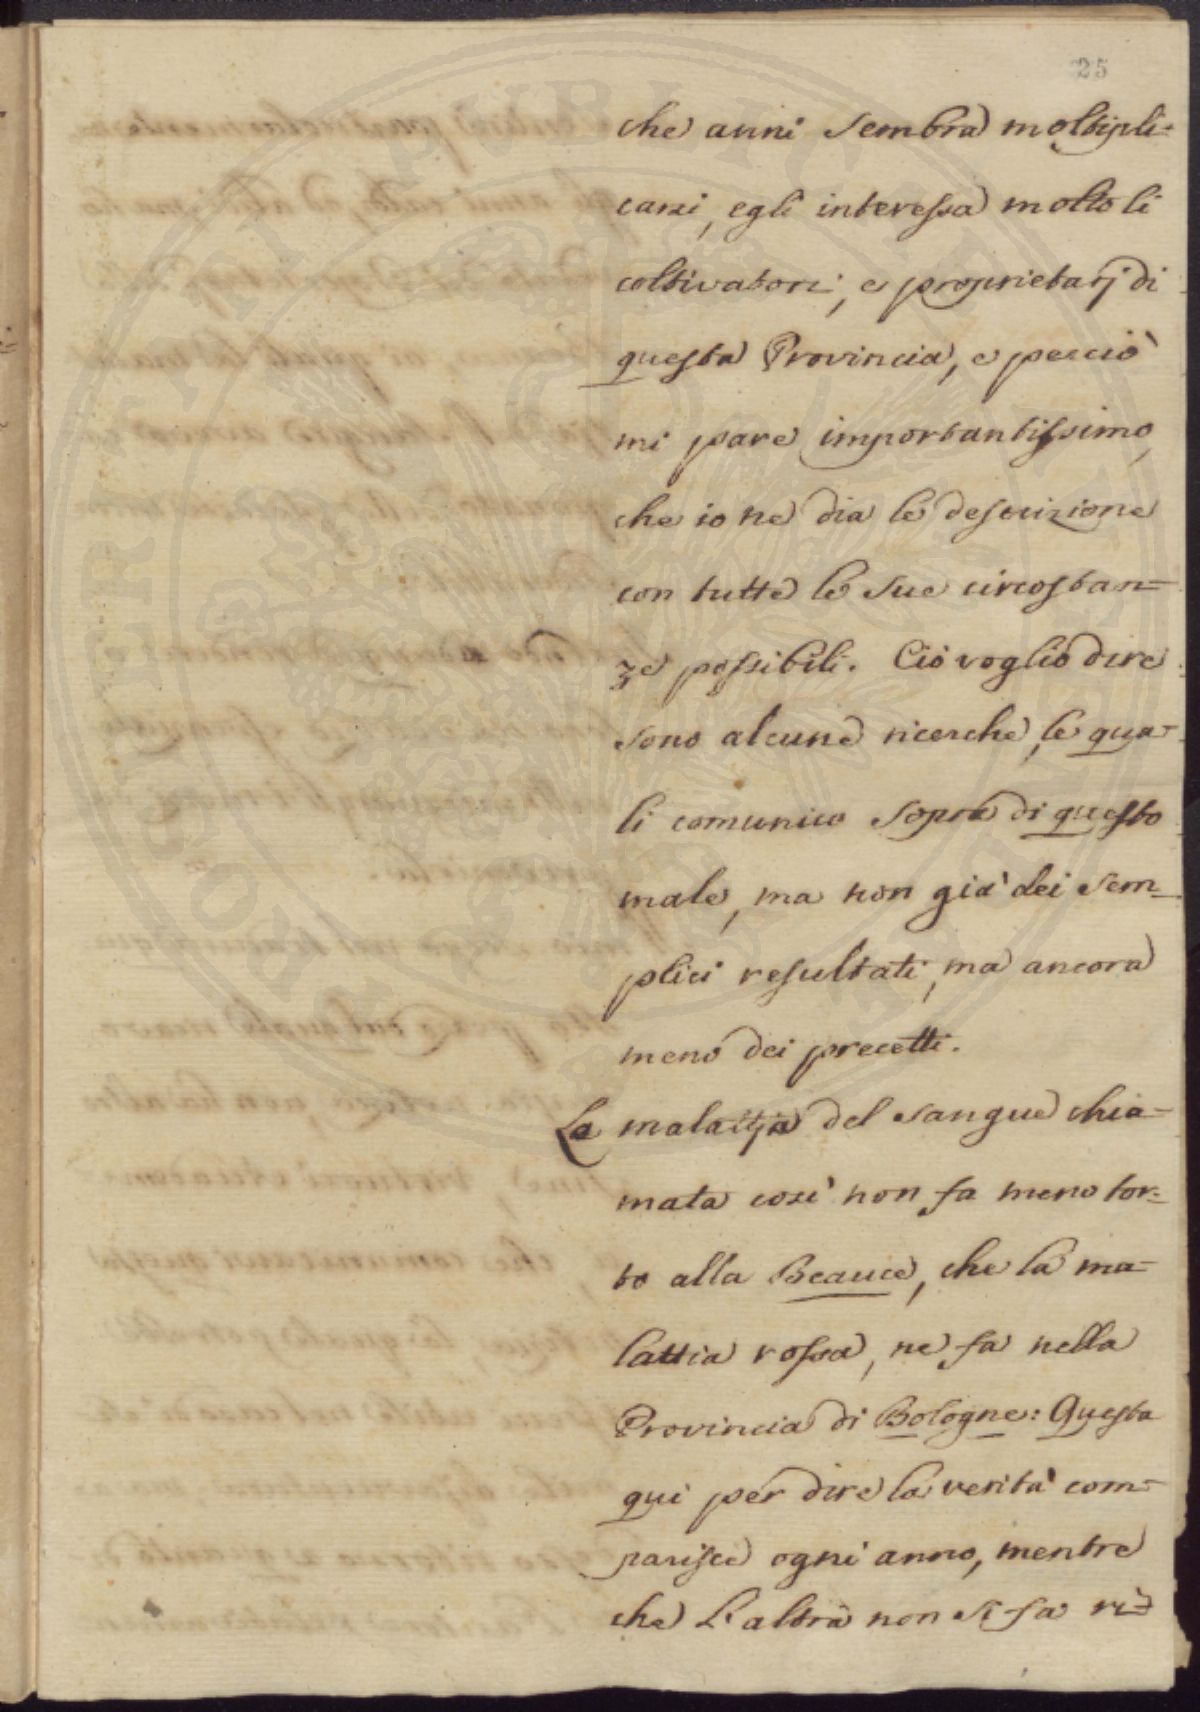 25
che anni sembra moltipli=
carsi, egli interessa molto li
coltivatori, e proprietarj di
questa Provincia, e perciò
mi pare importantissimo,
che io ne dia le descrizione
con tutte le sue circostan=
ze possibili. Ciò voglio dire
sono alcune ricerche, le qua=
li comunico sopra di questo
male, ma non già dei sem=
plici resultati, ma ancora
meno dei precetti.
La malattia del sangue chia=
mata così non fa meno tor=
to alla Beauce, che la ma=
lattia rossa, ne fa nella
Provincia di Bologne: Questa
qui per dire la verità com=
parisce ogni anno, mentre
che L'altra non si fa ri=